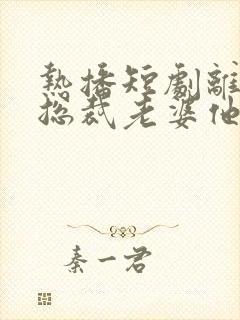 熱播短劇離
總裁老婆他
秦一君